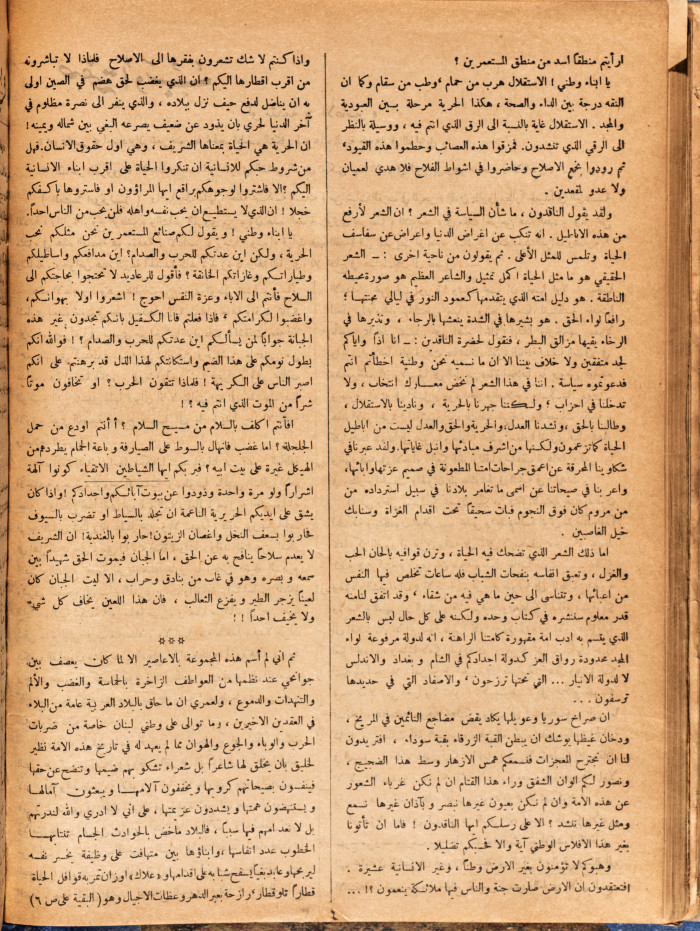 أرأيتم منطقاً اسد من منطق المستعمرين ؟
يا ابناء وطني ! الاستقلال هرب من حمام ، وطب من سقام وكما ان
النقه درجة بين الداء والصحة ، هكذا الحرية مرحلة بين العبودية
والمجد . الاستقلال غاية بالنسبة الى الرق الذي انتم فيه ، ووسيلة بالنظر
الى الرقي الذي تنشدون . فمزقوا هذه العصائب وحطموا هذه القيود ،
ثم رودوا نجع الاصلاح وحاضروا في اشواط الفلاح فلا هدي لعميان
ولا عدو لمقعدين .
ولقد يقول الناقدون ، ما شأن السياسة في الشعر ؟ ان الشعر لأرفع
من هذه الاباطيل . انه تنكب عن اغراض الدنيا واعراض عن سفاسف
الحياة وتلمس للمثل الأعلى . ثم يقولون من ناحية اخرى : ــ الشعر
الحقيقي هو ما مثل الحياة اكمل تمثيل والشاعر العظيم هو صورة محيطه
الناطقة . هو دليل امته الذي يتقدمها كعمود النور في ليالي محنتها ؛
رافعاً لواء الحق . هو بشيرها في الشدة ينعشها بالرجاء ، ونذيرها في
الرخاء يقيها مزالق البطر ، فنقول لحضرة الناقدين : ــ انا اذاً واياكم
لجد متفقين ولا خلاف بيننا الا ان ما نسميه نحن وطنية اخطأتم انتم
فدعوتموه سياسة . اننا في هذا الشعر لم نخض معارك انتخاب ، ولا
تدخلنا في احزاب ؛ ولكننا جهرنا بالحرية ، ونادينا بالاستقلال ،
وطالبنا بالحق ، ونشدنا العدل ، والحرية والحق والعدل ليست من اباطيل
الحياة كما تزعمون ولكنها من اشرف مبادئها وانبل غاياتها. ولقد عبرنا في
شكاوينا المحرقة عن اعمق جراحات امتنا المطعونة في صميم عزتها وابائها،
واعربنا في صيحاتنا عن اسمى ما تغامر بلادنا في سبيل استرداده من
من مروم كان فوق النجوم فبات سحيقاً تحت اقدام الغزاة وسنابك
خيل الغاصبين .
اما ذلك الشعر الذي تضحك فيه الحياة ، وترن قوافيه بالحان الحب
والغزل ، وتعبق انفاسه بنفحات الشباب فله ساعات تخلص فيها النفس
من اعبائها ، وتتناسى الى حين ما هي فيه من شقاء ، وقد اتفق لنا منه
قدر معلوم سننشره في كتاب وحده ولكنه على كل حال ليس بالشعر
الذي يقسم به ادب امة مقهورة كأمتنا الراهنة ، انه لدولة مرفوعة لواء
المجد ممدودة رواق العز كدولة اجدادكم في الشام و بغداد والاندلس
لا لدولة الانيار ... التي تحتها ترزحون ، والاصفاد التي في حديدها
ترسفون ...
ان صراخ سوريا وعويلها يكاد يقض مضاجع النائمين في المريخ ،
ودخان غيظها يوشك ان يبطن القبة الزرقاء بقبة سوداء . افتريدون
لنا ان نجترح المعجزات فنسمعكم همس الازهار وسط هذا الضجيج ،
ونصور لكم الوان الشفق وراء هذا القتام ان لم نكن غرباء الشعور
عن هذه الامة وان لم نكن بعيون غيرها نبصر و بآذان غيرها نسمع
ومثل غيرها ننشد ؟ الا على رسلكم ايها الناقدون ! فاما ان تأتونا
بغير هذا الافلاس الوطني آية والا فحسبكم تضليلا .
وهبوكم لا تؤمنون بغير الارض وطناً ، وغير الانسانية عشيرة .
افتعتقدون ان الارض صارت جنة والناس فيها ملائكة ينعمون ؟! ...
واذا كنتم لا شك تشعرون بفقرها الى الاصلاح فلماذا لا تباشرونه
من اقرب اقطارها اليكم ؟ ان الذي يغضب لحق هضم في الصين اولى
به ان يناضل لدفع حيف نزل ببلاده ، والذي ينفر الى نصرة مظلوم في
آخر الدنيا لحري بان يذود عن ضعيف يصرعه البغي بين شماله ويمينه!
ان الحرية هي الحياة بمعناها الشريف ، وهي اول حقوق الانسان. فهل
من شروط حبكم للانسانية ان تنكروا الحياة على اقرب ابناء الانسانية
اليكم ؟ الا فاشتروا لوجوهكم براقع ايها المراؤون او فاستروها بأكفكم
خجلا ! ان الذي لا يستطيع ان يحب نفسه واهله فلن يحب من الناس احداً.
يا ابناء وطني ! و يقول لكم صنائع المستعمرين نحن مثلكم نحب
الحرية ، ولكن اين عدتكم للحرب والصدام؟ اين مدافعكم واساطيلكم
وطياراتكم وغازاتكم الخانقة ؟ فأقول للرعاديد لا تحتجوا بحاجتكم الى
السلاح فأنتم الى الاباء وعزة النفس احوج ! اشعروا اولا بهوانكم،
واغضبوا لكرامتكم ، فاذا فعلتم فانا الكفيل بانكم تجدون غير هذه
الجبانة جواباً لمن يسألكم اين عدتكم للحرب والصدام ؟ ! فوالله انكم
بطول نومكم على هذا الضيم واستكانتكم لهذا الذل قد برهنتم على انكم
اصبر الناس على الكريهة ! فلماذا تتقون الحرب ؟ او تخافون موتاً
شراً من الموت الذي انتم فيه ؟ !
افأنتم اكلف بالسلام من مسيح السلام ؟ أأنتم اودع من حمل
الجلجلة ؟ اما غضب فانهال بالسوط على الصيارفة وباعة الحمام يطردهم من
الهيكل غيرة على بيت ابيه ؟ فبربكم ايها الشياطين الاتقياء كونوا آلهة
اشراراً ولو مرة واحدة وذودوا عن بيوت آبائكم واجدادكم ! واذا كان
يشق على ايديكم الحريرية الناعمة ان تجلد بالسياط او تضرب بالسيوف
فحاربوا بسعف النخل واغصان الزيتون! حاربوا بالغندية! ان الشريف
لا يعدم سلاحاً ينافح به عن الحق ، اما الجبان فيموت الحق شهيداً بين
سمعه و بصره وهو في غاب من بنادق وحراب ، الا ليت الجبان كان
لعيناً يزجر الطير و يفزع الثعالب ، فان هذا اللعين يخاف كل شيء
ولا يخيف احداً ! !
***
ثم اني لم أسم هذه المجموعة بالاعاصير الا لما كان يعصف بين
جوانحي عند نظمها من العواطف الزاخرة بالحماسة والغضب والألم
والتنهدات والدموع ، ولعمري ان ما حاق بالبلاد العربية عامة من البلاء
في العقدين الاخيرين ، وما توالى على وطني لبنان خاصة من ضربات
الحرب والوباء والجوع والهوان مما لم يعهد له في تاريخ هذه الامة نظير
لخليق بان يخلق لها شاعراً بل شعراء تشكو بهم ضيمها وتنضح عن حقها
فينفسون بصيحاتهم كروبها و يخففون آلامها و يبعثون آمالها
و يستنهضون همتها و يشددون عزيمتها ، على اني لا ادري والله لندرتهم
بل لا نعدامهم فيها سبباً ، فالبلاد ماخض بالحوادث الجسام تنتابهـا
الخطوب عدد انفاسها ، وابناؤها بين متهافت على وظيفة يخسر نفسه
ليربحها وعابد بغياً يسفح شبابه على اقدامها و«علاك» اوزان تمر به قوافل الحياة
قطاراً تلو قطار ، رازحة بعبر الدهر وعظات الاجيال وهو ( البقية على ص ٦ )